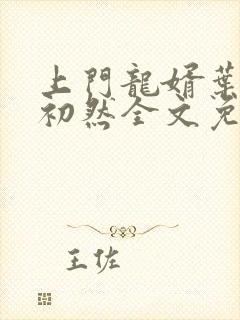 上門龍婿葉
初然全文免
王佐